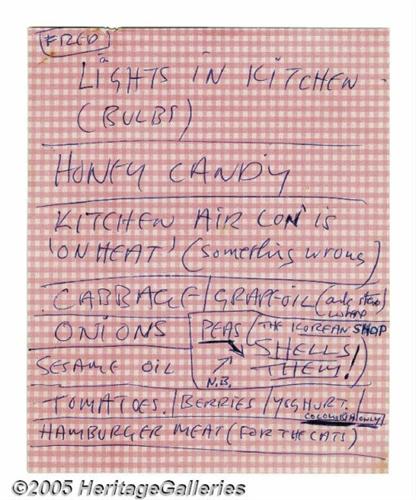 FRED
LIGHTS IN KITCHEN
(BULBS)
HONEY CANDY
KITCHEN AIR CON' IS
'ON HEAT' (something wrong)
CABBAGE / GRAPEOIL (ask
ONIONS PEAS (THE KOREAN SHOP
SHELLS
SESAME OIL N.B. THEM!)
TOMATOES. / BERRIES / YOGHURT.
COLUMBIA ONLY
HAMBURGER MEAT (FOR THE CATS)
©2005 HeritageGalleries